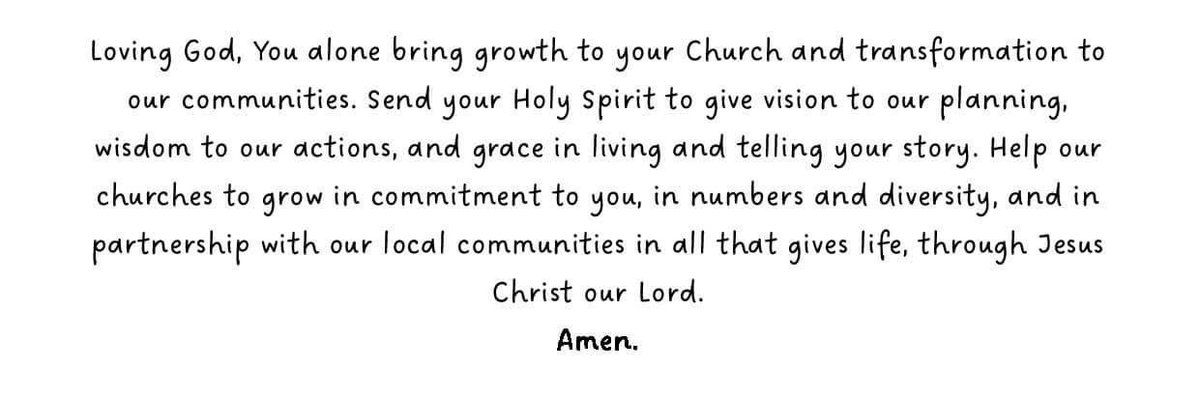 Loving God, You alone bring growth to your Church and transformation to
our communities. Send your Holy Spirit to give vision to our planning,
wisdom to our actions, and grace in living and telling your story. Help our
churches to grow in commitment to you, in numbers and diversity, and in
partnership with our local communities in all that gives life, through Jesus
Christ our Lord.
Amen.